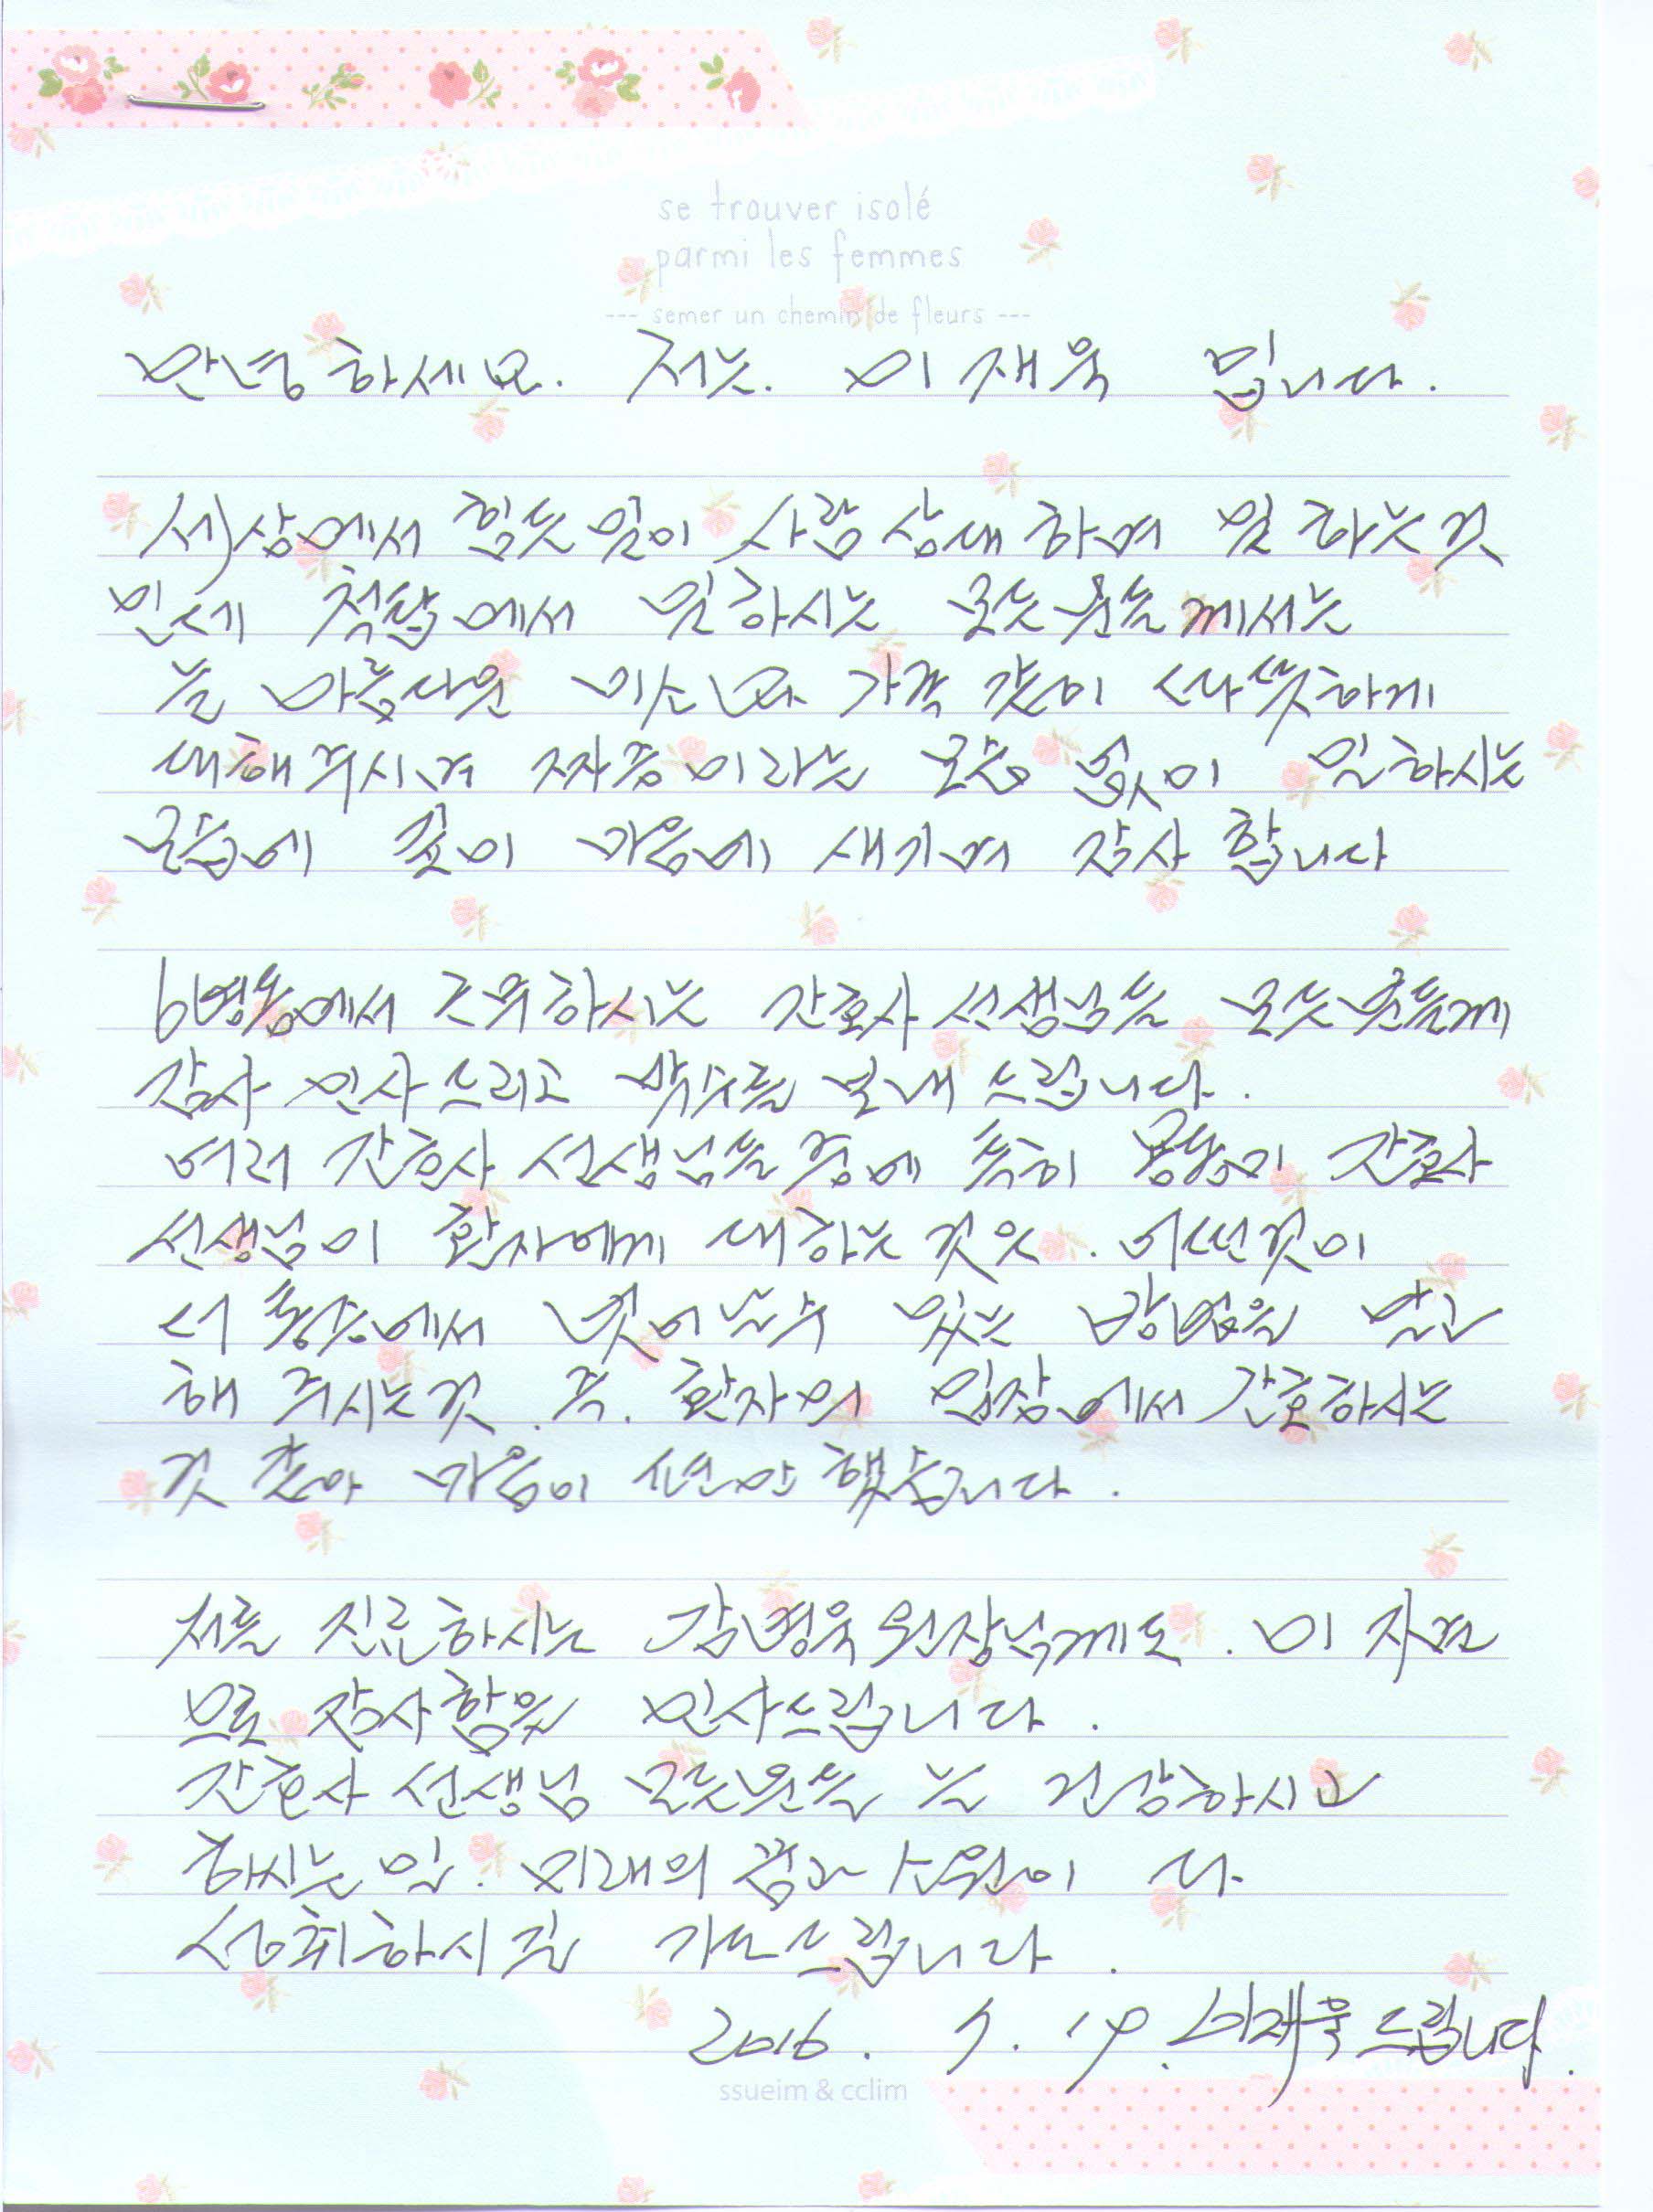 se trouver isolé
parmi les femmes
--- semer un chemin de fleurs ---
안녕하세요. 저는. 이재욱 입니다.
세상에서 힘든일이 사람 상대하며 일 하는것
인데 척탑에서 일하시는 모든분들께서는
늘 아름다운 미소로 가족 같이 따뜻하게
대해주시며 짜증이라는 모습 없이 일하시는
모습에 깊이 마음에 새기며 감사 합니다
6병동에서 근무하시는 간호사 선생님들 모든분들께
감사 인사드리고 박수를 보내 드립니다.
여러 간호사 선생님들중에 특히 간호사
선생님이 환자에게 대하는 것은. 어떤것이
더 통증에서 벗어날수 있는 방법을 말
해 주시는것. 즉. 환자의 입장에서 간호하시는
것 같아 마음이 편안했습니다.
저를 진료하시는 김병욱 원장님께도. 이 지면
으로 감사함을 인사드립니다.
간호사 선생님 모든분들 늘 건강하시고
하시는 일. 미래의 꿈과 소원이 다
성취하시길 기도드립니다.
2016. 7. 14. 이재욱 드립니다.
ssueim & cclim